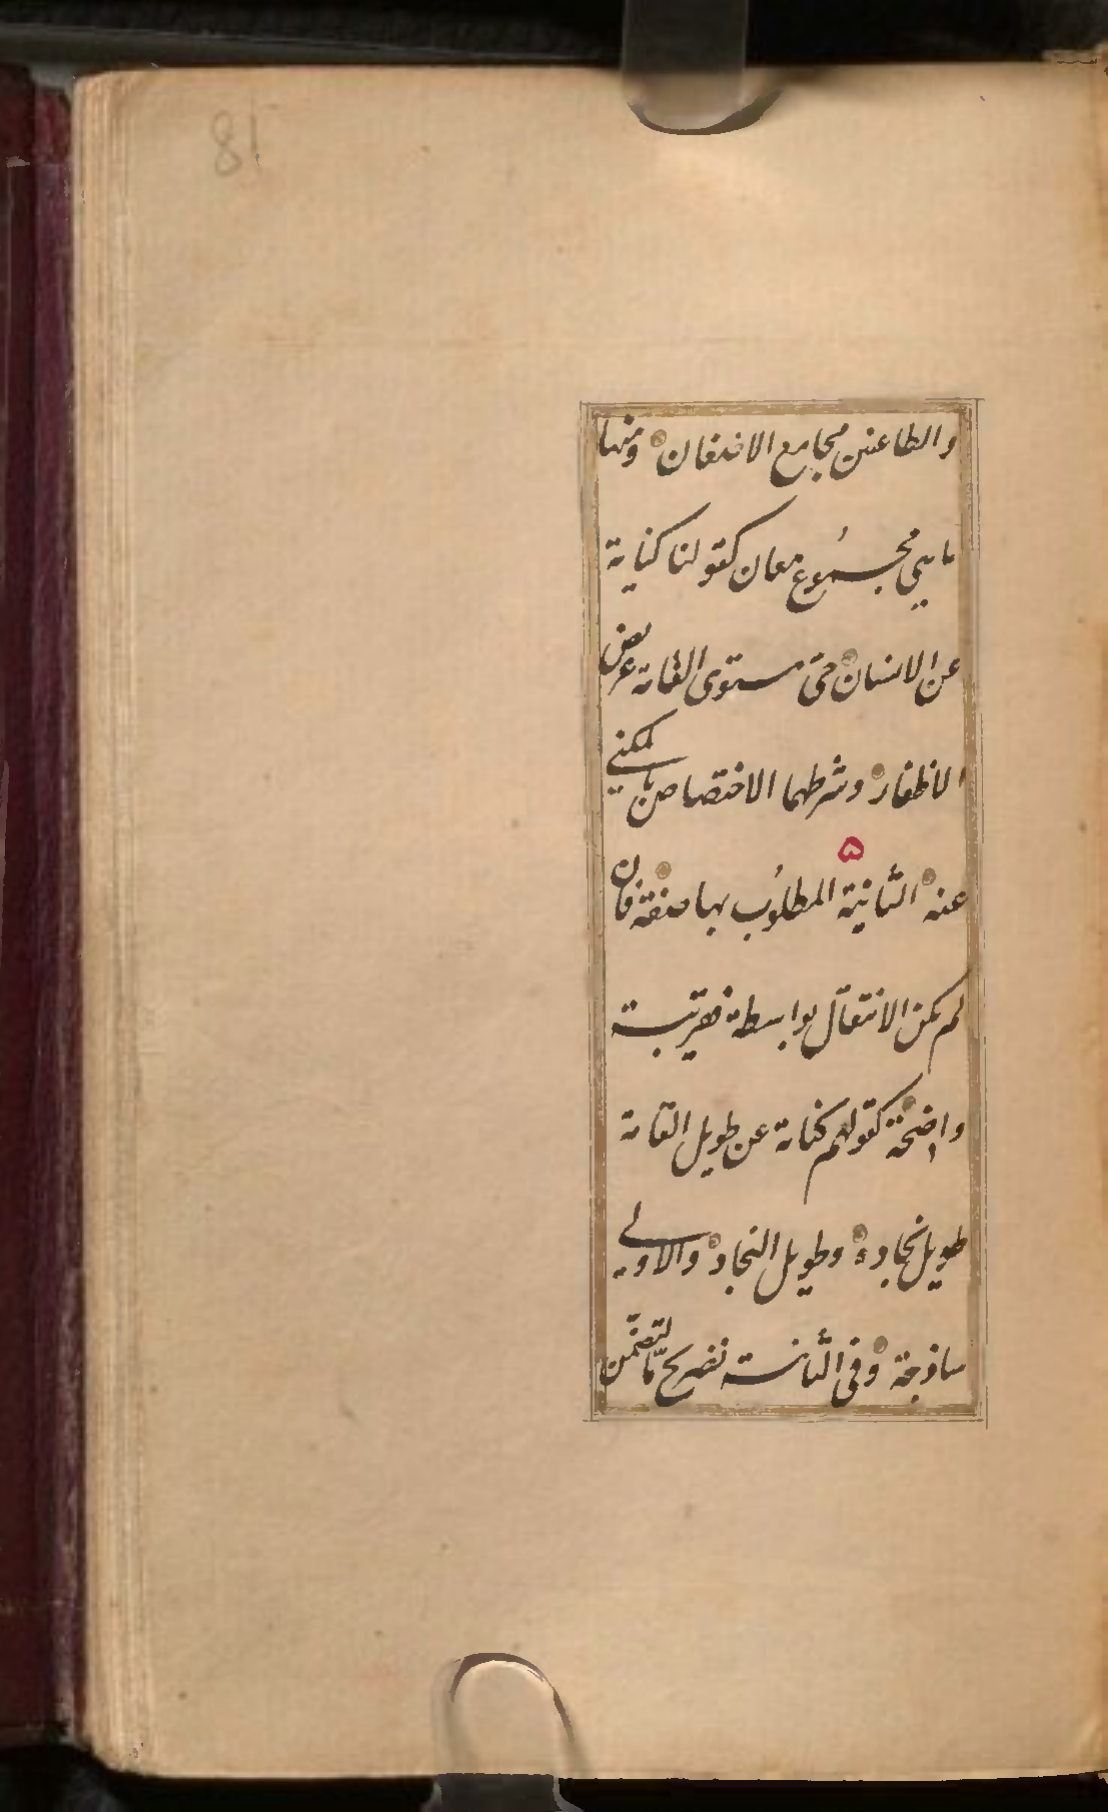 81
والطاعنين مجامع الاضغان ومنها
ما هي مجموع معان كقولنا كناية
عن الانسان حي مستوى القامة عريض
الاظفار وشرطهما الاختصاص بالمكني
عنه الثانية المطلوب بها صفة فان
لم يكن الانتقال بواسطة فقريبة
واضحة كقولهم كناية عن طويل القامة
طويل نجاده وطويل النجاد والاولى
ساذجة وفي الثانية تصريح ما لتضمن